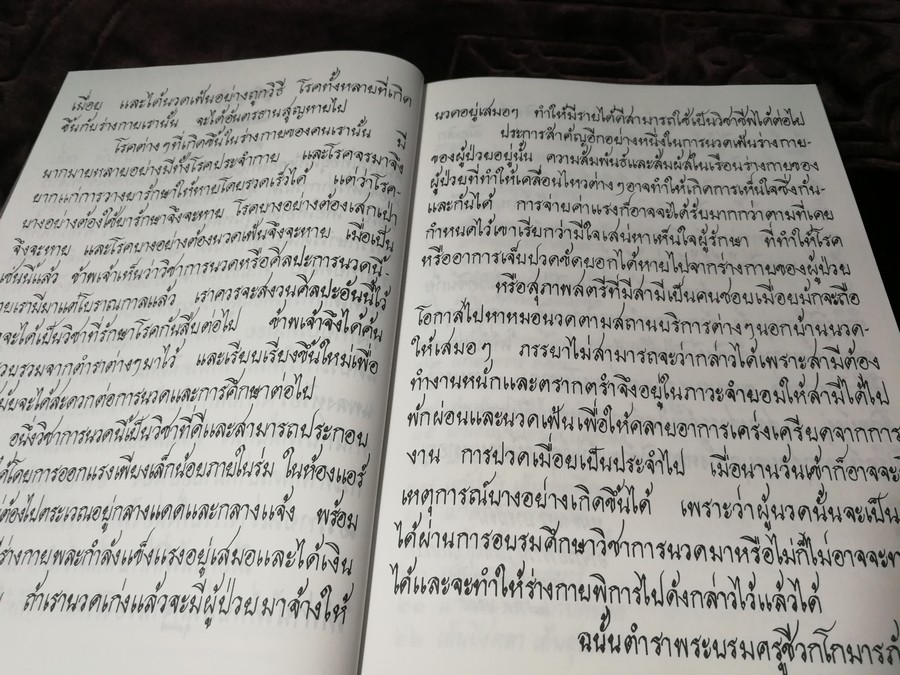 เมื่อย และได้นวดเฟ้นอย่างถูกวิธี โรคทั้งหลายที่เกิด
ขึ้นกับร่างกายเรานั้น จะได้อันตรธานสูญหายไป
โรคต่างๆที่เกิดขึ้นในร่างกายของคนเรานั้น มี
มากมายหลายอย่างมีทั้งโรคประจำกาย และโรคจรมาจึง
ยากแก่การวางยารักษาให้หายโดยรวดเร็วได้ แต่ว่าโรค-
บางอย่างต้องใช้ยารักษาจึงจะหาย โรคบางอย่างต้องเสกเป่า
จึงจะหาย และโรคบางอย่างต้องนวดเฟ้นจึงจะหาย เมื่อเป็น
เช่นนี้แล้ว ข้าพเจ้าเห็นว่าวิชาการนวดหรือศิลปะการนวดนี้-
เรามีมาแต่โบราณกาลแล้ว เราควรจะสงวนศิลปะอันนี้ไว้
จะได้เป็นวิชาที่รักษาโรคกันสืบต่อไป ข้าพเจ้าจึงได้ค้น
รวบรวมจากตำราต่างๆมาไว้ และเรียบเรียงขึ้นใหม่เพื่อ
จะได้สะดวกต่อการนวดและการศึกษาต่อไป
อนึ่งวิชาการนวดนี้เป็นวิชาที่ดีและสามารถประกอบ
โดยการออกแรงเพียงเล็กน้อยภายในร่ม ในห้องแอร์
ต้องไปตระเวณอยู่กลางแดดและกลางแจ้ง พร้อม
ร่างกายพละกำลังแข็งแรงอยู่เสมอและได้เงิน
ถ้าเรานวดเก่งแล้วจะมีผู้ป่วยมาจ้างให้
นวดอยู่เสมอๆ ทำให้มีรายได้ดีสามารถใช้เป็นวิชาชีพได้ต่อไป
ประการสำคัญอีกอย่างหนึ่งในการนวดเฟ้นร่างกาย-
ของผู้ป่วยอยู่นั้น ความสัมพันธ์และสัมผัสในเรือนร่างกายของ
ผู้ป่วยที่ทำให้เคลื่อนไหวต่างๆอาจทำให้เกิดการเห็นใจซึ่งกัน-
และกันได้ การจ่ายค่าแรงก็อาจจะได้รับมากกว่าตามที่เคย
กำหนดไว้เขาเรียกว่ามีใจเสน่หาเห็นใจผู้รักษา ที่ทำให้โรค
หรืออาการเจ็บปวดขัดยอกได้หายไปจากร่างกายของผู้ป่วย
หรือสุภาพสตรีที่มีสามีเป็นคนชอบเมื่อยมักจะถือ
โอกาสไปหาหมอนวดตามสถานบริการต่างๆนอกบ้านนวด-
ให้เสมอๆ ภรรยาไม่สามารถจะว่ากล่าวได้เพราะสามีต้อง
ทำงานหนักและตรากตรำจึงอยู่ในภาวะจำยอมให้สามีได้ไป
พักผ่อนและนวดเฟ้นเพื่อให้คลายอาการเคร่งเครียดจากการ
งาน การปวดเมื่อยเป็นประจำไป เมื่อนานวันเข้าก็อาจจะ
เหตุการณ์บางอย่างเกิดขึ้นได้ เพราะว่าผู้นวดนั้นจะเป็น
ได้ผ่านการอบรมศึกษาวิชาการนวดมาหรือไม่ก็ไม่อาจจะ
ได้และจะทำให้ร่างกายพิการไปดังกล่าวไว้แล้วได้
ฉนั้นตำราพระบรมครูชีวกโกมารภั